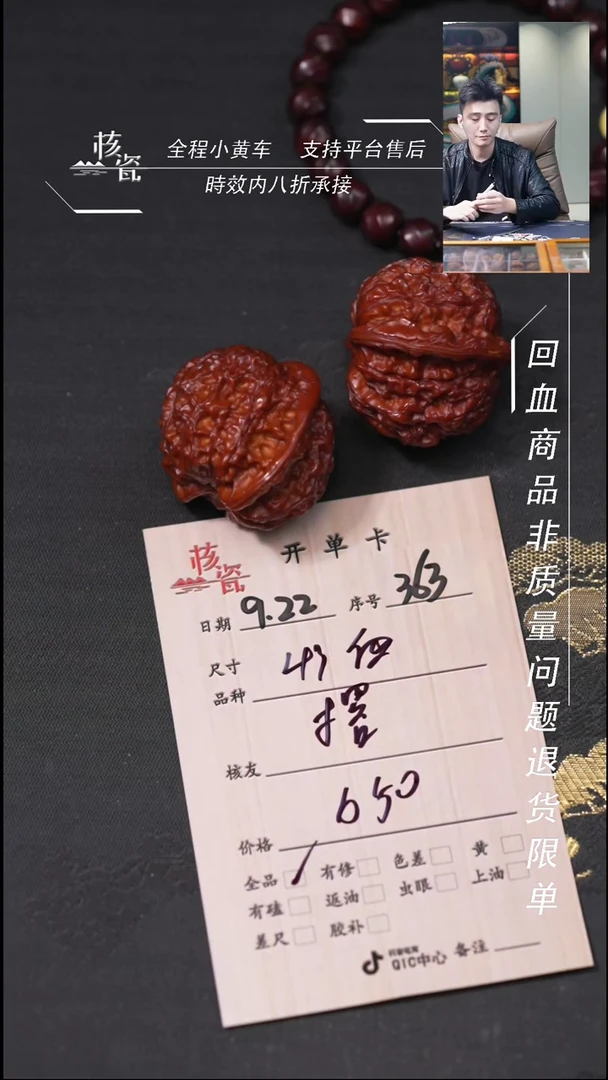 核瓷
全程小黄车 支持平台售后
時效内八折承接
回血商品非质量问题退货限单
核瓷
开单卡
日期 9.22 序号 363
尺寸
品种
核友
650
价格
全品 有修 色差 黄
有磕 返油 虫眼 上油
差尺 胶补
QIC中心 备注